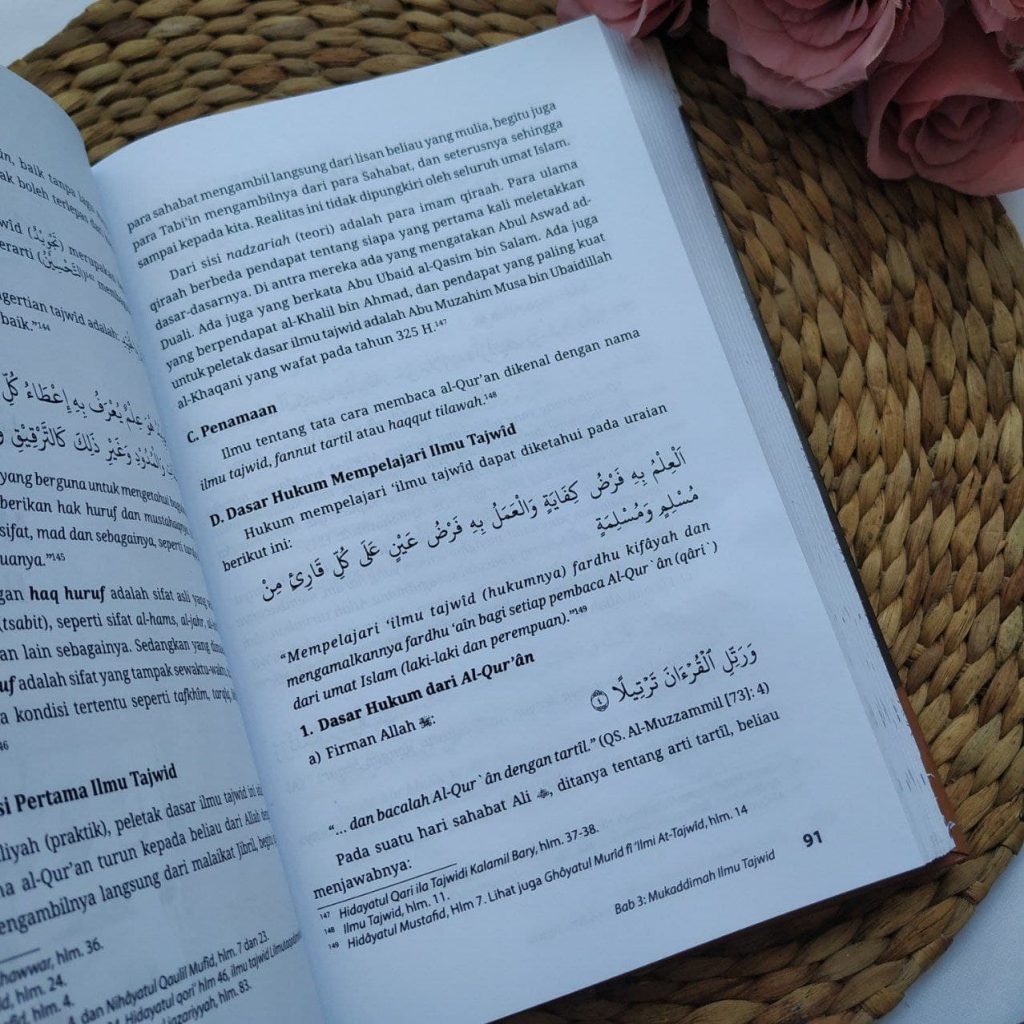 baik tanpa
ak boleh terlepas
wîd (تَجْوِيْدٌ) merupakan
erarti (التَّحْسِيْنُ)
ngertian tajwîd adalah:
baik."¹⁴⁴
هُوَ عِلْمٌ يُعْرَفُ بِهِ إِعْطَاءُ كُلِّ
وَالْمُدُوْدِ وَغَيْرِ ذَلِكَ كَالتَّرْقِيْقِ
yang berguna untuk mengetahui
berikan hak huruf dan
sifat, mad dan sebagainya, seperti
uanya."¹⁴⁵
gan haq huruf adalah sifat asli
(tsabit), seperti sifat al-hams, al-jahr,
an lain sebagainya. Sedangkan yang
uf adalah sifat yang tampak sewaktu-waktu
a kondisi tertentu seperti tafkhim,
46
si Pertama Ilmu Tajwid
liyah (praktik), peletak dasar ilmu tajwid ini
na al-Qur'an turun kepada beliau dari Allah
engambilnya langsung dari malaikat Jibril,
hawwar, hlm. 36.
d, hlm. 24.
fîd, hlm. 4.
dan Nihâyatul Qaulil Mufîd, hlm. 7 dan 23.
Hidayatul qori' hlm 46, ilmu tajwid
Jazariyyah, hlm. 83.
para sahabat mengambil langsung dari lisan beliau yang mulia, begitu juga
para Tabi'in mengambilnya dari para Sahabat, dan seterusnya sehingga
sampai kepada kita. Realitas ini tidak dipungkiri oleh seluruh umat Islam.
Dari sisi nadzariah (teori) adalah para imam qiraah. Para ulama
qiraah berbeda pendapat tentang siapa yang pertama kali meletakkan
dasar-dasarnya. Di antra mereka ada yang mengatakan Abul Aswad ad-
Duali. Ada juga yang berkata Abu Ubaid al-Qasim bin Salam. Ada juga
yang berpendapat al-Khalil bin Ahmad, dan pendapat yang paling kuat
untuk peletak dasar ilmu tajwid adalah Abu Muzahim Musa bin Ubaidillah
al-Khaqani yang wafat pada tahun 325 H.¹⁴⁷
C. Penamaan
Ilmu tentang tata cara membaca al-Qur'an dikenal dengan nama
ilmu tajwid, fannut tartil atau haqqut tilawah.¹⁴⁸
D. Dasar Hukum Mempelajari Ilmu Tajwîd
Hukum mempelajari 'ilmu tajwîd dapat diketahui pada uraian
berikut ini:
اَلْعِلْمُ بِهِ فَرْضُ كِفَايَةٍ وَالْعَمَلُ بِهِ فَرْضُ عَيْنٍ عَلَى كُلِّ قَارِئٍ مِنْ
مُسْلِمٍ وَمُسْلِمَةٍ
"Mempelajari 'ilmu tajwîd (hukumnya) fardhu kifâyah dan
mengamalkannya fardhu 'aîn bagi setiap pembaca Al-Qur`ân (qâri`)
dari umat Islam (laki-laki dan perempuan)."¹⁴⁹
1. Dasar Hukum dari Al-Qur'ân
a) Firman Allah ﷻ:
وَرَتِّلِ ٱلْقُرْءَانَ تَرْتِيلًا ٤
"... dan bacalah Al-Qur`ân dengan tartîl." (QS. Al-Muzzammil [73]: 4)
Pada suatu hari sahabat Ali , ditanya tentang arti tartîl, beliau
menjawabnya:
147 Hidayatul Qari ila Tajwidi Kalamil Bary, hlm. 37-38.
148 Ilmu Tajwid, hlm. 11.
149 Hidâyatul Mustafid, Hlm 7. Lihat juga Ghôyatul Murîd fî 'Ilmi At-Tajwîd, hlm. 14
Bab 3: Mukaddimah Ilmu Tajwid 91